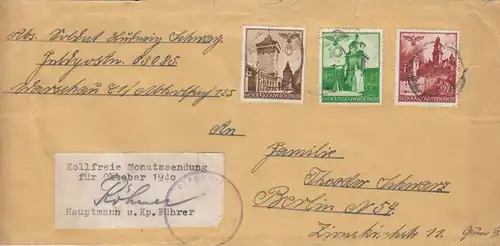 Abs. Soldat Ludwig Schwarz
Feldpostn. 08085
Warschau C1/
GENERALGOUVERNEMENT
GENERALGOUVERNEMENT
GENERALGOUVERNEMENT
24
An
Familie
Theodor Schwarz
Berlin N 54.
11
Zollfreie Monatssendung
für Oktober 1940
Hauptmann u. Kp. Führer